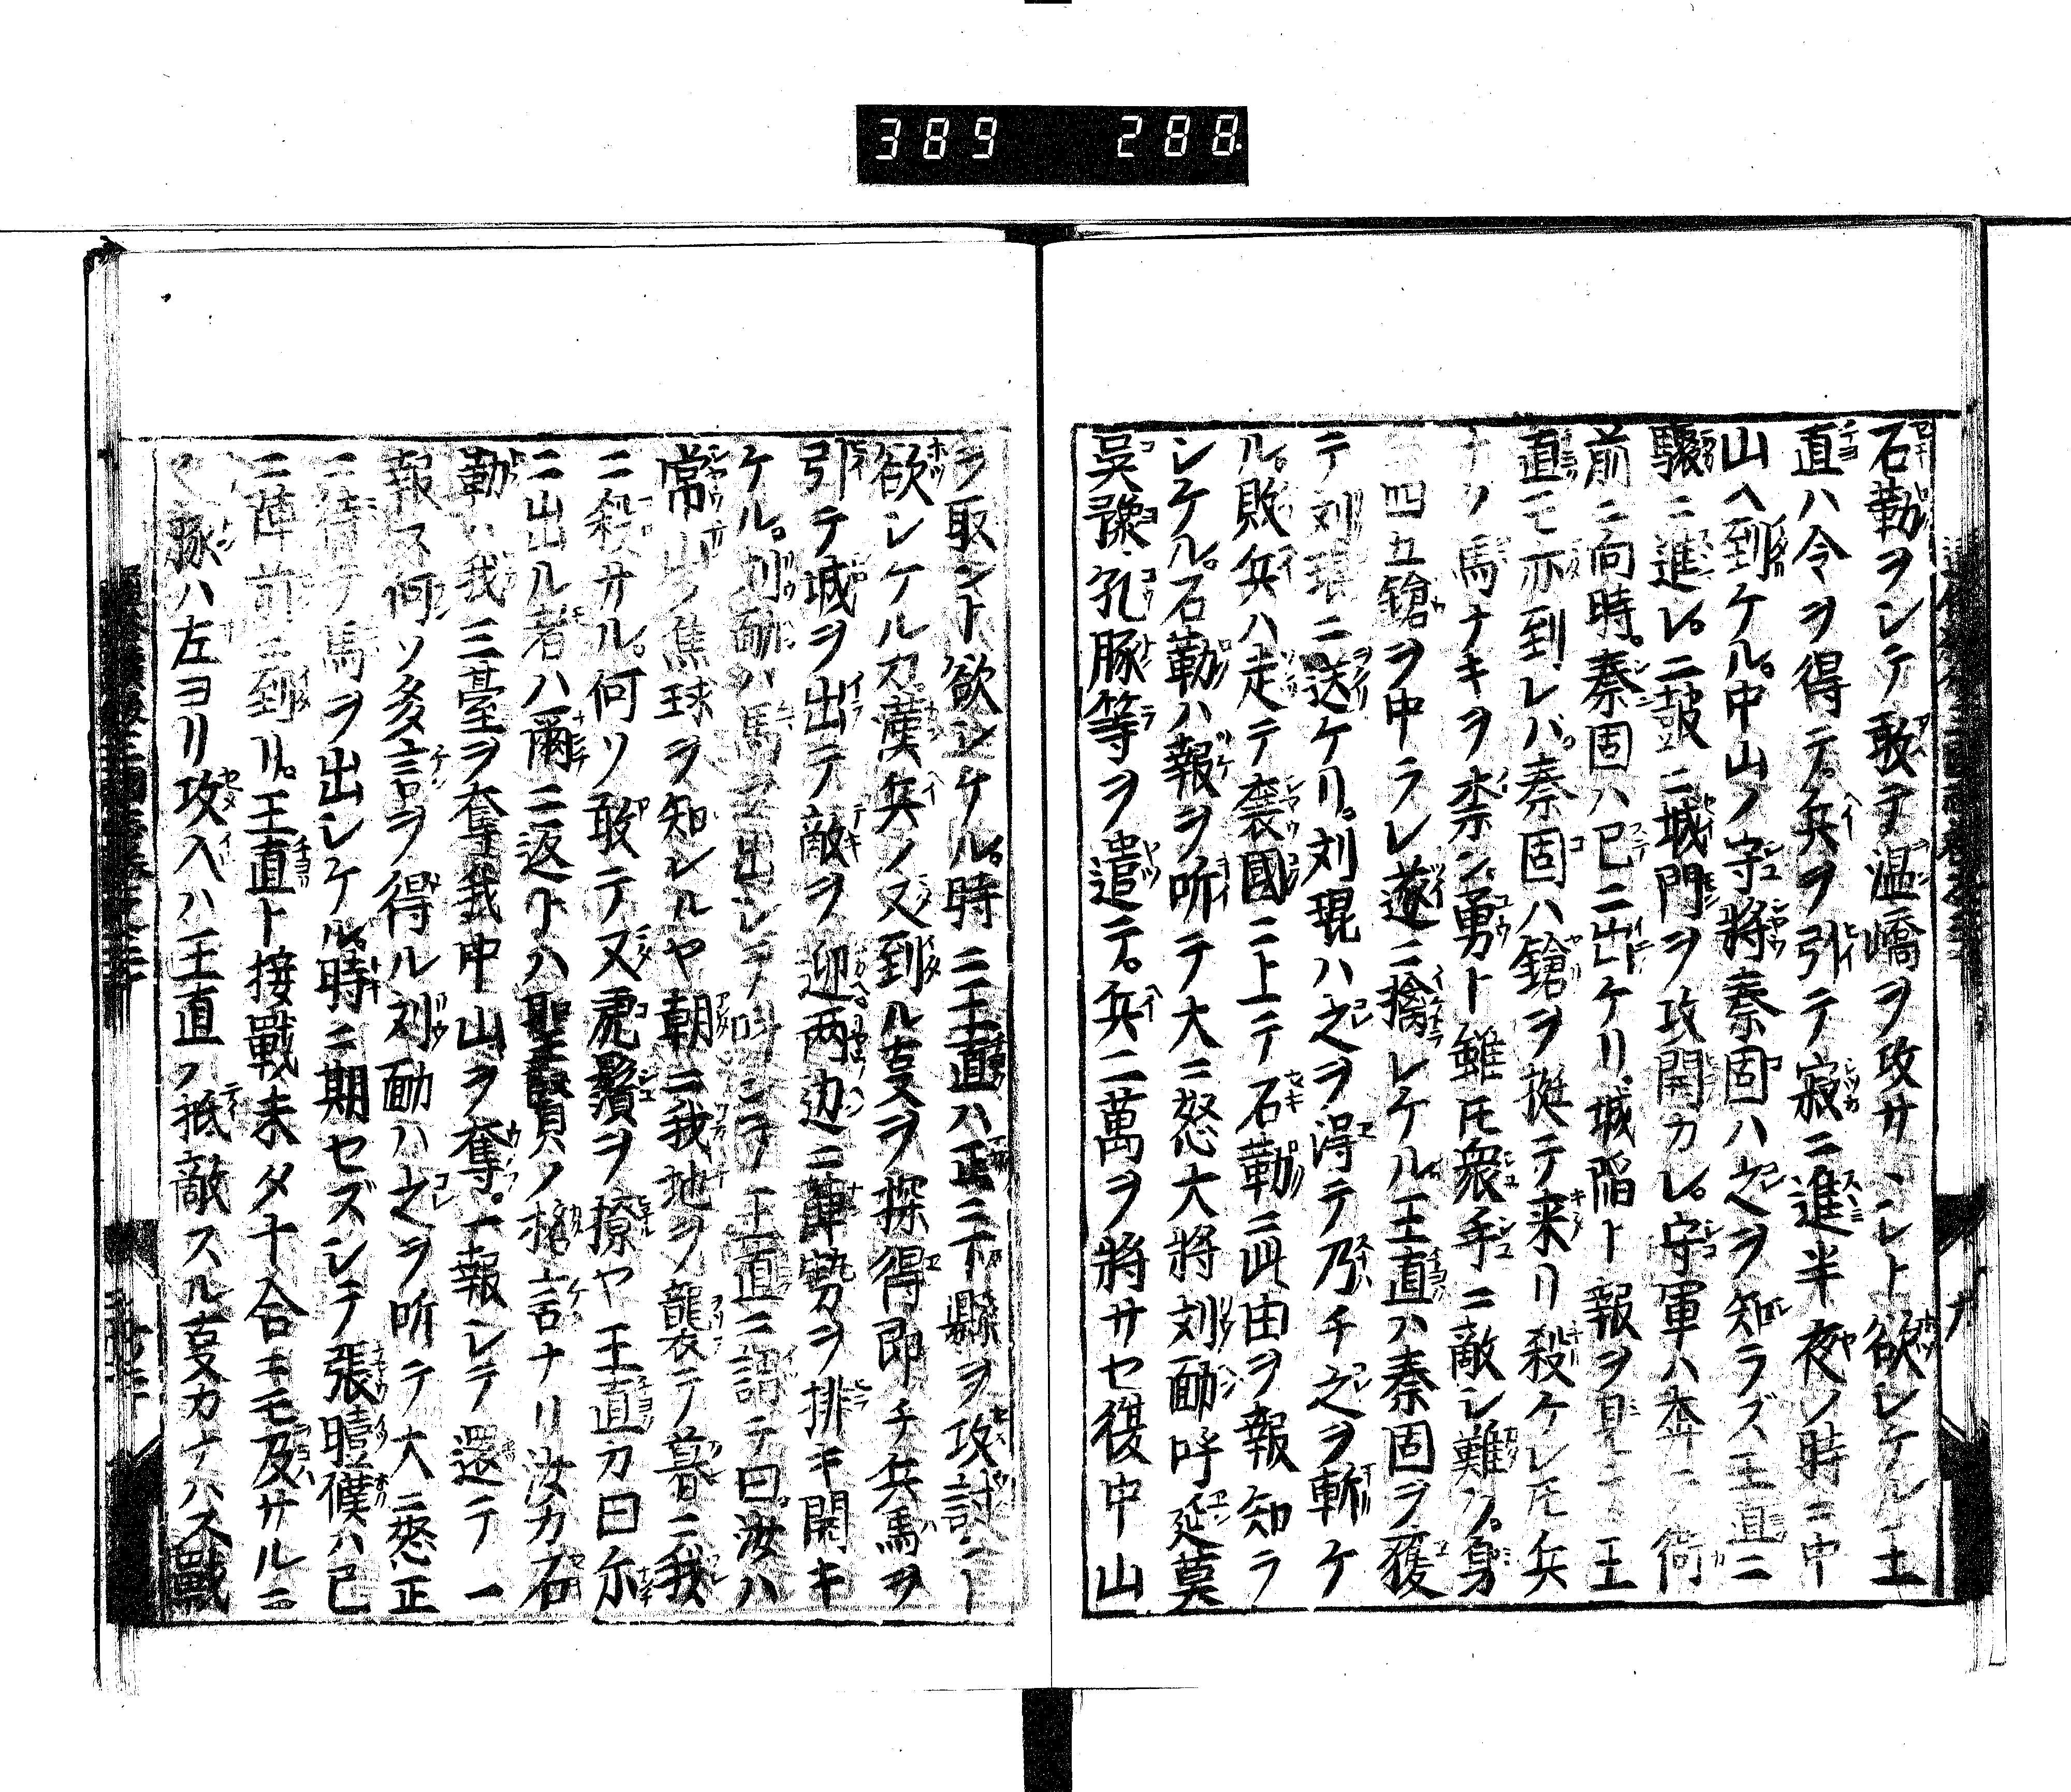 389 288
石勒ヲシテ敢テ温嶠ヲ攻サシレト欲シケル王
直ハ令ヲ得テ。兵ヲ引テ寂ニ進半夜ノ時ニ中
山ヘ到ケル。中山ノ守將秦固ハ之ヲ知ラズ王直ニ
驟ニ進レ。二鼓ニ城門ヲ攻開カレ。守軍ハ奔ニ
前ニ向時。秦固ハ已ニ出ケリ。城陥ト報ヲ見ニ王
直モ亦到レバ。秦固ハ鎗ヲ挺テ来リ殺ケレ𪜈兵
ナク馬ナキヲ柰ン。勇ト雖𪜈衆手ニ敵シ難ク。身
四五鎗ヲ中ラレ遂ニ擒レケル。王直ハ秦固ヲ獲
テ刘琨ニ送ケリ。刘琨ハ之ヲ得テ乃チ之ヲ斬ケ
ル。敗兵ハ走テ襄國ニ上テ石勒ニ此由ヲ報知ラ
シケル。石勒ハ報ヲ听テ大ニ怒大將刘勔呼延莫
吳豫孔豚等ヲ遣テ。兵二萬ヲ將サセ復中山
ヲ取ント欲シケル。時ニ王直ハ正ニ下縣ヲ攻討ント
欲シケルカ漢兵ノ又到ル㕝ヲ探得即チ兵馬ヲ
引テ城ヲ出テ敵ヲ迎两边ニ陣勢ヲ排キ開キ
ケル。刘勔ハ馬ヲ出シテ王直ニ謂テ曰。汝ハ
常山ノ焦球ヲ知シルヤ朝ニ我地ヲ襲テ暮ニ我
ニ殺サル。何ソ敢テ又虎鬚ヲ撩ヤ王直カ曰尓
ニ出ル者ハ爾ニ返トハ聖賢ノ格言ナリ汝カ石
勒ハ我三臺ヲ奪我中山ヲ奪。一報シテ還テ一
報ス何ソ多言ヲ得ル刘勔ハ之ヲ听テ大ニ怒正
ニ待テ馬ヲ出シケル。時ニ期セズシテ張曀僕ハ已
ニ陣前ニ到リ。王直ト接戰未タ十合ニモ及サルニ
豚ハ左ヨリ攻入ハ王直ノ抵敵スル㕝カナハス戰